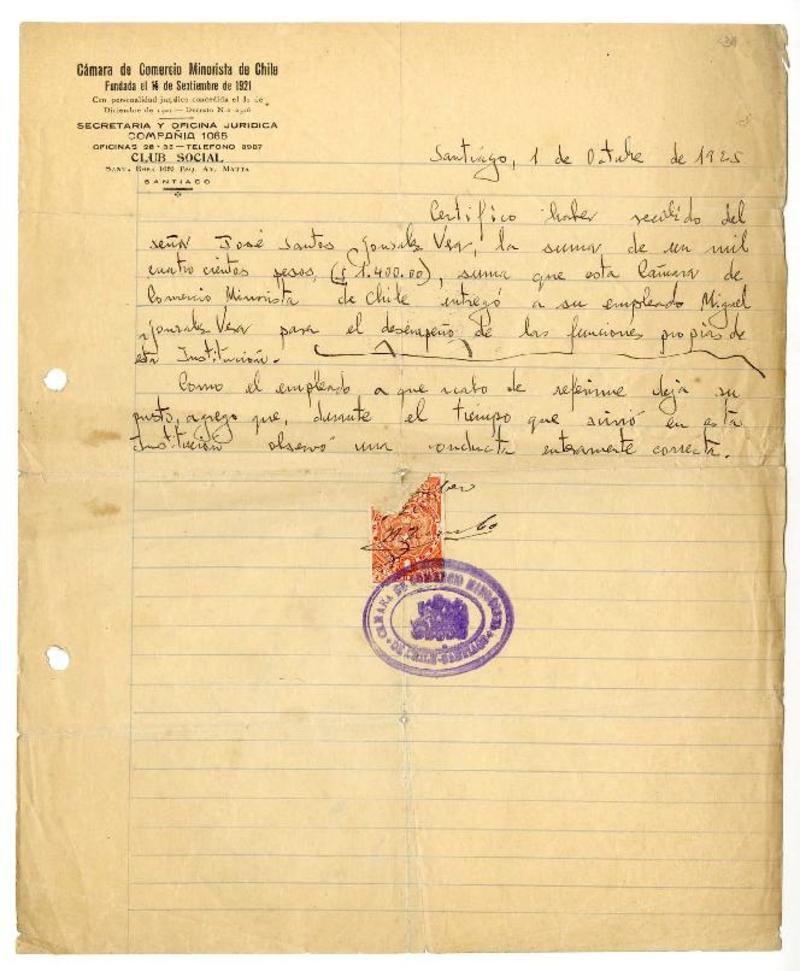 Cámara de Comercio Minorista de Chile
Fundada el 16 de Septiembre de 1921
Con personalidad jurídica concedida el
Diciembre de
SECRETARIA Y OFICINA JURIDICA
COMPAÑIA 1065
TELEFONO 8987
CLUB SOCIAL
SANTA ROSA ESQ. AV. MATTA
SANTIAGO
Santiago, 1 de Octubre de 1925
Certifico haber recibido del
señor José Santos González Vera, la suma de un mil
cuatrocientos pesos, ($ 1.400.00), suma que esta Cámara de
Comercio Minorista de Chile entregó a su empleado Miguel
González Vera para el desempeño de las funciones propias de
esta Institución.
Como el empleado a que acabo de referirme deja su
puesto, agrego que, durante el tiempo que sirvió en esta
Institución observó una conducta enteramente correcta.
CAMARA DE COMERCIO MINORISTA